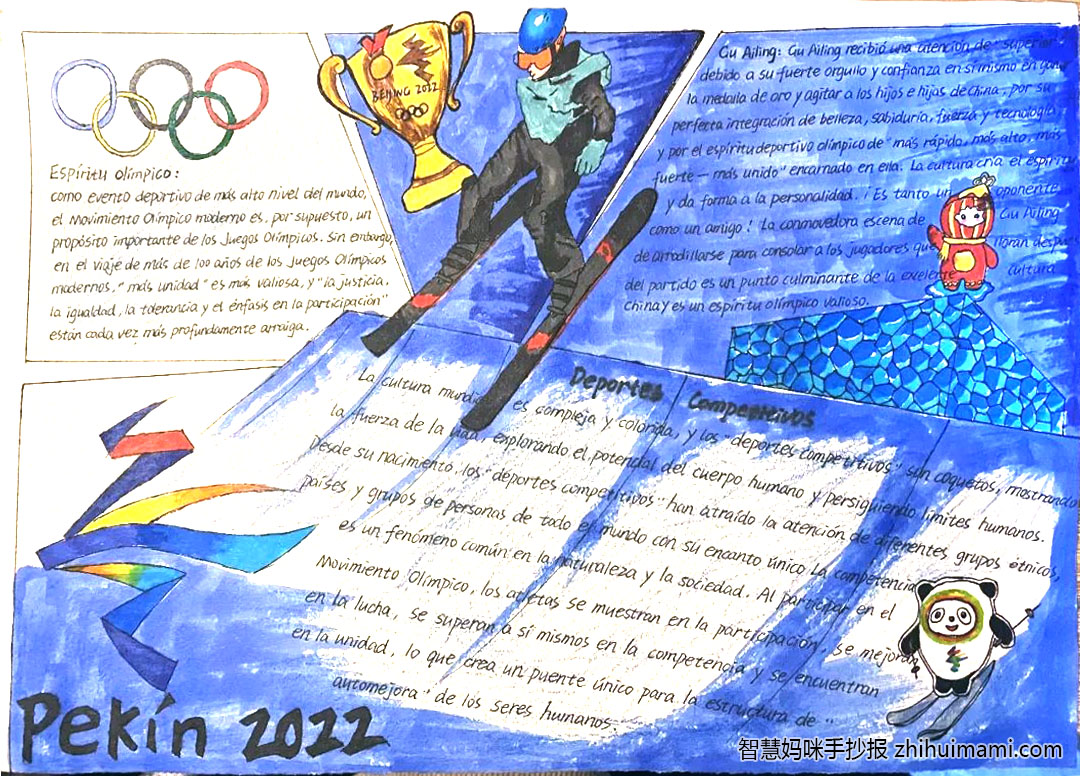 BEIJING 2022
Espíritu olímpico:
como evento deportivo de más alto nivel del mundo,
el Movimiento Olímpico moderno es, por supuesto, un
propósito importante de los Juegos Olímpicos. Sin embargo,
en el viaje de más de 100 años de los Juegos Olímpicos
modernos, "más unidad" es más valiosa, y "la justicia,
la igualdad, la tolerancia y el énfasis en la participación"
están cada vez más profundamente arraiga.
Gu Ailing: Gu Ailing recibió una atención de "superior
debido a su fuerte orgullo y confianza en sí mismo en ganar
la medalla de oro y agitar a los hijos e hijas de China, por su
perfecta integración de belleza, sabiduría, fuerza y tecnología
y por el espíritu deportivo olímpico de "más rápido, más alto, más
fuerte — más unido" encarnado en ella. La cultura cria el espíritu
y da forma a la personalidad. ¡Es tanto un oponente
como un amigo! La conmovedora escena de Gu Ailing
de arrodillarse para consolar a los jugadores que lloran después
del partido es un punto culminante de la exelente cultura
China y es un espíritu olímpico valioso.
Deportes Competitivos
La cultura es compleja y colorida, y los "deportes competitivos" son coquetos, mostrando
la fuerza de la vida, explorando el potencial del cuerpo humano y persiguiendo límites humanos.
Desde su nacimiento, los "deportes competitivos" han atraído la atención de diferentes grupos étnicos,
países y grupos de personas de todo el mundo con su encanto único La competencia
es un fenómeno común en la naturaleza y la sociedad. Al participar en el
Movimiento Olímpico, los atletas se muestran en la participación, se mejoran
en la lucha, se superan a sí mismos en la competencia y se encuentran
en la unidad, lo que crea un puente único para la estructura de "
automejora" de los seres humanos.
Pekín 2022
智慧妈咪手抄报 zhihuimami.com